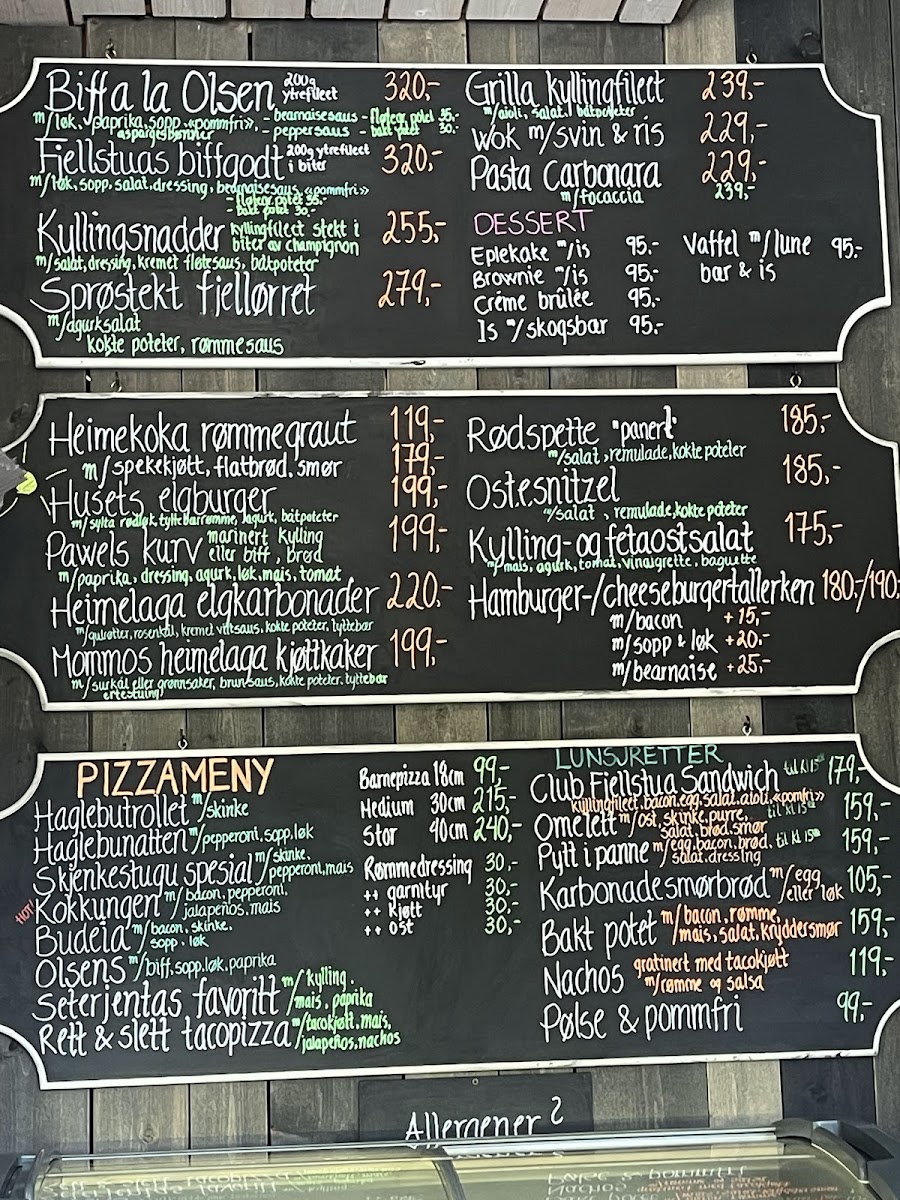 Biff a la Olsen 200g ytrefileet 320,-
m/løk, paprika, sopp, «pommfri», - bearnaisesaus - fløtegr. potet 35.-
aspargesbønner - peppersaus - bakt potet 30.-
Fjellstuas biffgodt 200g ytrefileet i biter 320,-
m/løk, sopp, salat, dressing, bearnaisesaus, «pommfri»
- fløtegr. potet 35.-
- bakt potet 30.-
Kyllingsnadder kyllingfileet stekt i biter av champignon 255,-
m/salat, dressing, kremet fløtesaus, båtpoteter
Sprøstekt fjellørret 279,-
m/agurksalat
kokte poteter, rømmesaus
Grilla kyllingfileet 239,-
m/aioli, salat, båtpoteter
Wok m/svin & ris 229,-
Pasta Carbonara 229,-
m/focaccia 239,-
DESSERT
Eplekake m/is 95.-
Brownie m/is 95.-
Créme brûlée 95.-
Is m/skogsbær 95.-
Vaffel m/lune bær & is 95.-
Heimekoka rømmegraut 119,-
m/spekekjøtt, flatbrød, smør 179,-
Husets elgburger 199,-
m/sylta rødløk, tyttebærrømme, agurk, båtpoteter
Pawels kurv marinert kylling eller biff, brød 199,-
m/paprika, dressing, agurk, løk, mais, tomat
Heimelaga elgkarbonader 220,-
m/gulrøtter, rosenkål, kremet viltsaus, kokte poteter, tyttebær
Mommos heimelaga kjøttkaker 199,-
m/surkål eller grønnsaker, brun saus, kokte poteter, tyttebær
ertestuing
Rødspette "panert" 185,-
m/salat, remulade, kokte poteter
Ostesnitzel 185,-
m/salat, remulade, kokte poteter
Kylling- og fetaostsalat 175,-
m/mais, agurk, tomat, vinaigrette, baguette
Hamburger-/cheeseburgertallerken 180,-/190,-
m/bacon +15,-
m/sopp & løk +20.-
m/bearnaise +25,-
PIZZAMENY
Haglebutrollet m/skinke
Haglebunatten m/pepperoni, sopp, løk
Skjenkestugu spesial m/skinke, pepperoni, mais
HOT! Kokkungen m/bacon, pepperoni, jalapeños, mais
Budeia m/bacon, skinke, sopp, løk
Olsens m/biff, sopp, løk, paprika
Seterjentas favoritt m/kylling, mais, paprika
Rett & slett tacopizza m/tacokjøtt, mais, jalapeños, nachos
Barnepizza 18cm 99,-
Medium 30cm 215,-
Stor 40cm 240,-
Rømmedressing 30,-
++ garnityr 30,-
++ kjøtt 30,-
++ ost 30,-
LUNSJRETTER
Club Fjellstua Sandwich til kl 15 179,-
kyllingfileet, bacon, egg, salat, aioli, «pomfri»
Omelett m/ost, skinke, purre, salat, brød, smør til kl 15 159,-
Pytt i panne m/egg, bacon, brød, salat, dressing til kl 15 159,-
Karbonadesmørbrød m/egg eller løk 105,-
Bakt potet m/bacon, rømme, mais, salat, kryddersmør 159,-
Nachos gratinert med tacokjøtt m/rømme og salsa 119,-
Pølse & pommfri 99,-
Allergener?